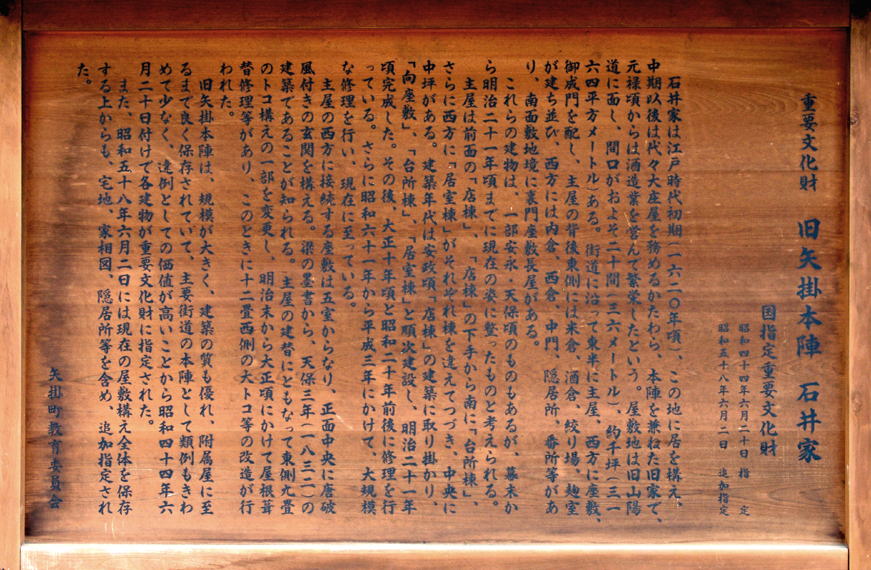 重要文化財　旧矢掛本陣　石井家
国指定重要文化財
昭和四十四年六月二十日　指　定
昭和五十八年六月二日　追加指定
石井家は江戸時代初期(一六二〇年頃)、この地に居を構え、
中期以後は代々大庄屋を務めるかたわら、本陣を兼ねた旧家で、
元禄頃からは酒造業を営んで繁栄したという。屋敷地は旧山陽
道に面し、間口がおよそ二十間(三六メートル)、約千坪(三一
六四平方メートル)ある。街道に沿って東半に主屋、西方に座敷、
御成門を配し、主屋の背後東側には米倉、酒倉、絞り場、麹室
が建ち並び、西方には内倉、西倉、中門、隠居所、番所等があ
り、南面敷地境に裏門座敷長屋がある。
これらの建物は、一部安永・天保頃のものもあるが、幕末か
ら明治二十一年頃までに現在の姿に整ったものと考えられる。
主屋は前面の「店棟」、「店棟」の下手から南に、「台所棟」、
さらに西方に「居室棟」がそれぞれ棟を違えてつづき、中央に
中坪がある。建築年代は安政頃「店棟」の建築に取り掛かり、
「向座敷」、「台所棟」、「居室棟」と順次建設し、明治二十一年
頃完成した。その後、大正十年頃と昭和二十年前後に修理を行
っている。さらに昭和六十一年から平成三年にかけて、大規模
な修理を行い、現在に至っている。
主屋の西方に接続する座敷は五室からなり、正面中央に唐破
風付きの玄関を構える。梁の墨書から、天保三年(一八三二)の
建築であることが知られる。主屋の建替にともなって東側九畳
のトコ構えの一部を変更し、明治末から大正頃にかけて屋根葺
替修理等があり、このときに十二畳西側の大トコ等の改造が行
われた。
旧矢掛本陣は、規模が大きく、建築の質も優れ、附属屋に至
るまで良く保存されていて、主要街道の本陣として類例もきわ
めて少なく、遺例としての価値が高いことから昭和四十四年六
月二十日付けで各建物が重要文化財に指定された。
また、昭和五十八年六月二日には現在の屋敷構え全体を保存
する上からも、宅地、家相図、隠居所等を含め、追加指定され
た。
矢掛町教育委員会